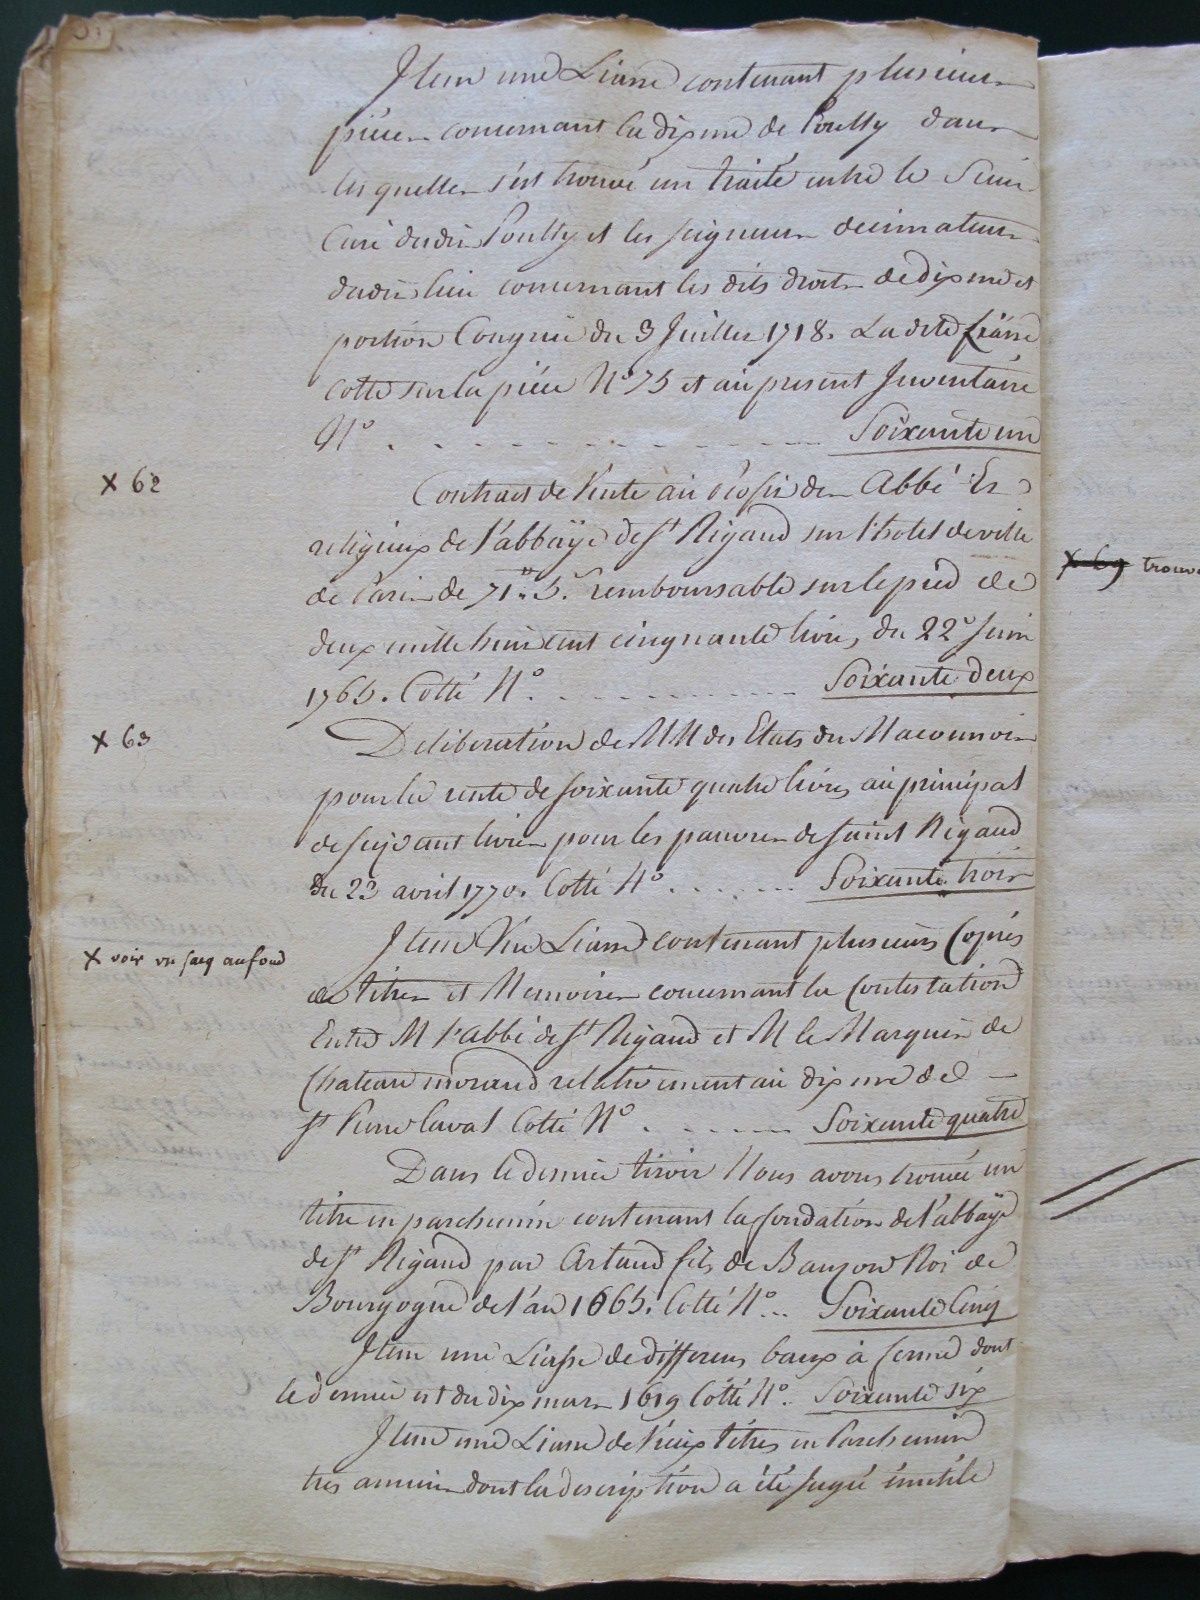 Item une Liasse contenant plusieurs
pièces concernant la dixme de Pouilly dans
lesquelles s'est trouvé un traité entre le Sieur
Curé dudit Pouilly et les seigneurs decimateurs
dudit lieu concernant les dits droits de dixme et
portion Congrue du 3 Juillet 1718. La dite Liasse
cotté sur la pièce N° 75 et au present Inventaire
N° . . . . . . . . . Soixante un
x 62
Contract de Vente au profit des Abbé Et
religieux de l'abbaÿe de St Rigaud sur l'hotel de ville
de Paris de 71.tt 5.s remboursable sur le pied de
deux mille huit cent cinquante livres, du 22e Juin
1765. Cotté N° . . . . . . . Soixante deux
x 63
Deliberation de MM des Etats du Maconnois
pour la rente de soixante quatre livres au principal
de seize cent livres pour les pauvres de saint Rigaud
du 23 avril 1770. Cotté N° . . . . . Soixante trois
x voir un sacq au fond
Item Une Liasse contenant plusieurs Copies
de titres et Memoires concernant la Contestation
Entre M l'abbé de St Rigaud et M le Marquis de
Chateau morand relativement au dixme de
St Pierre Laval Cotté N° . . . . . Soixante quatre
Dans le dernier tiroir Nous avons trouvé un
titre en parchemin contenant la fondation de l'abbaÿe
de St Rigaud par Artaud fils de Bauzon Roi de
Bourgogne de l'an 1065. Cotté N° .. Soixante Cinq
Item une Liasse de differens baux à ferme dont
le dernier est du dix mars 1619 Cotté N°. Soixante six
Item une Liasse de Vieux titres en Parchemin
tres anciens dont la description a été jugée inutile
x 69 trouvé